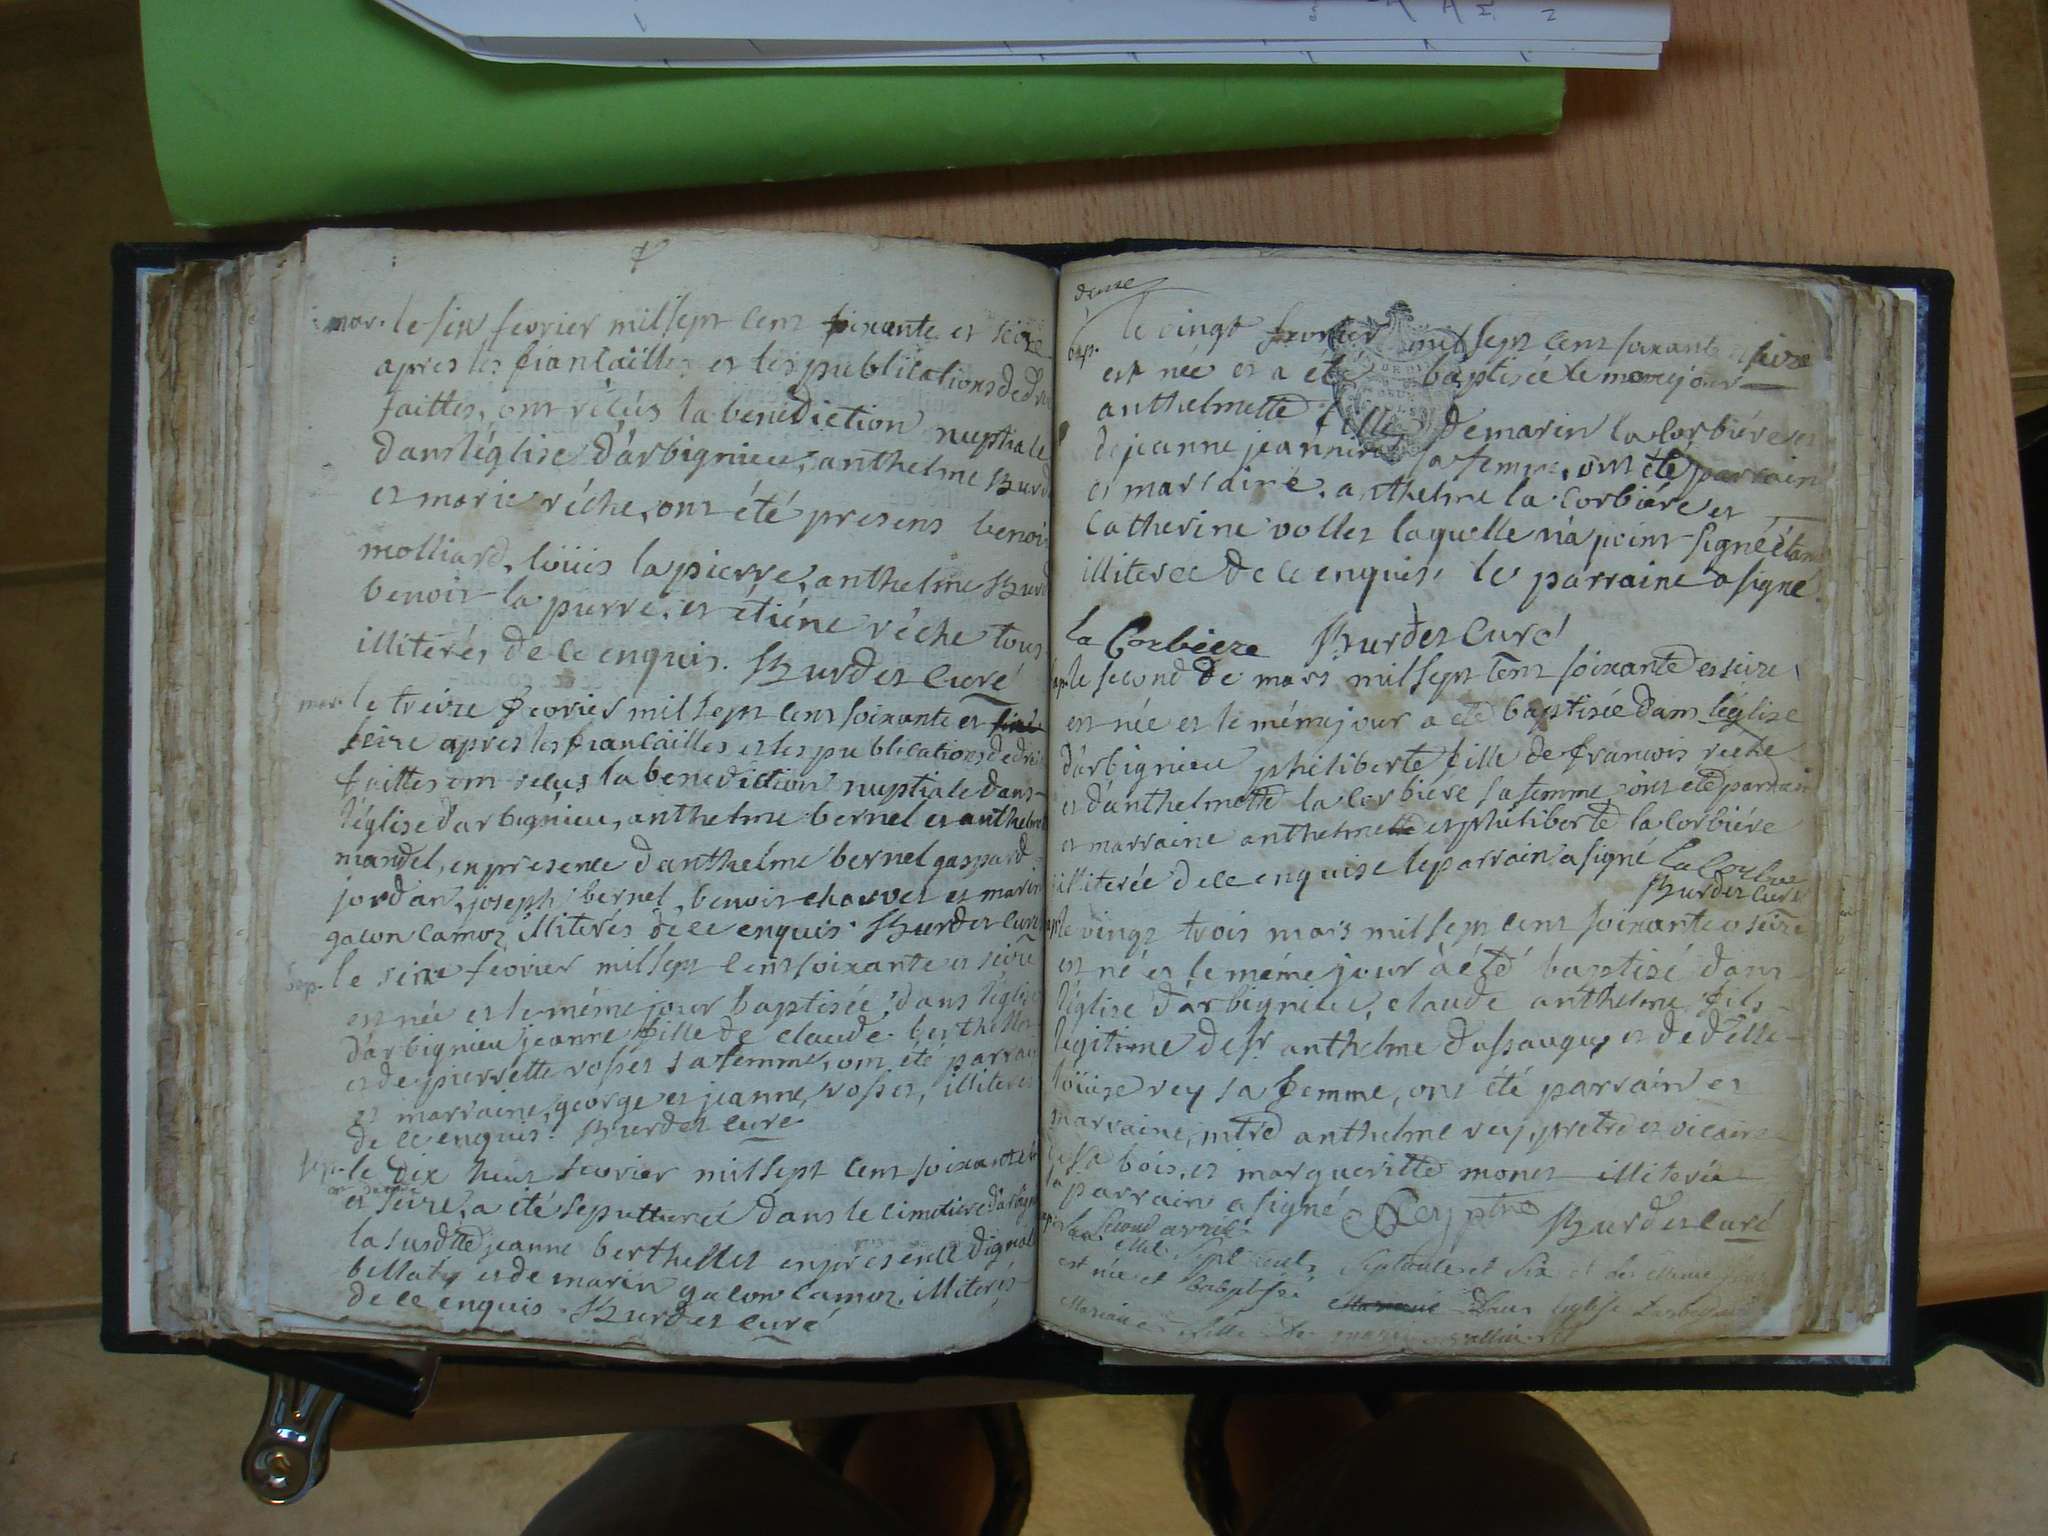 mar. le six fevrier mil sept cent soixante et seize
apres les fiançailles et les publications de droi
faittes, ont réçus la benediction nuptiale
dans l'église d'arbignieu, anthelme Burd
et marie réche, ont été presens benoit
molliard, loüis la pierre, anthelme Burd
benoit la pierre, et étiéne réche tous
illiterés de ce enquis. Burdet curé
mar. le treize fevrier mil sept cent soixante et
seize apres les fiançailles et les publications de dri
faittes ont reçus la benediction nuptiale dans
l'église d'arbignieu, anthelme bernel et anthelm
mandel, en presence d'anthelme bernel gaspard
jordan, joseph bernel, benoit charvet et marin
gacon camoz illiterés de ce enquis. Burdet curé
bap. le seize fevrier mil sept cent soixante et seize
est née et le méme jour baptisée, dans l'église
d'arbignieu jeanne fille de claude berthellet
et de pierrette rosset sa femme, ont été parrai
et marraine, george et jeanne rosset, illiteres
de ce enquis. Burdet curé
sep. le dix huit fevrier mil sept cent soixante
et seize, a été sepulturée dans le cimetiere d'arbign
la susdtte jeanne berthellet en presence d'
bellaty et de marin gacon camoz, illiterés
de ce enquis. Burdet curé
douze
bap. le vingt fevrier mil sept cent soixante et seize
est née et a été baptisée le meme jour
anthelmette fille de marin la Corbiére et
de jeanne jeannin sa femme, ont été parrain
et marraine, anthelme la Corbiére et
Catherine vollet laquelle n'a point signé étant
illiterée de ce enquise, le parraine a signé
la Corbiere Burdet curé
bap. le second de mars mil sept cent soixante et seize
est née et le méme jour a été baptisée dans l'église
d'arbignieu philiberte fille de francois reche
et d'anthelmette la Corbiére sa femme, ont été parrain
et marraine anthelme et philiberte la Corbiére
illiterée de ce enquise le parrain a signé La Corbiere
Burdet curé
bap. le vingt trois mars mil sept cent soixante et seize
est né et le méme jour à été baptisé dans
l'église d'arbignieu, claude anthelme fils
légitime de sr. anthelme dussaugey et de dElle
loüise rey sa femme, ont été parrain et
marraine, mtre anthelme rey, pretre et vicaire
bois, et margueritte monet illiterée
le parrain a signé Rey ptre Burdet curé
le second avril
Mil sept cent septante et six et le meme jour
est née et babptisé dans leglise
Mariane fille de